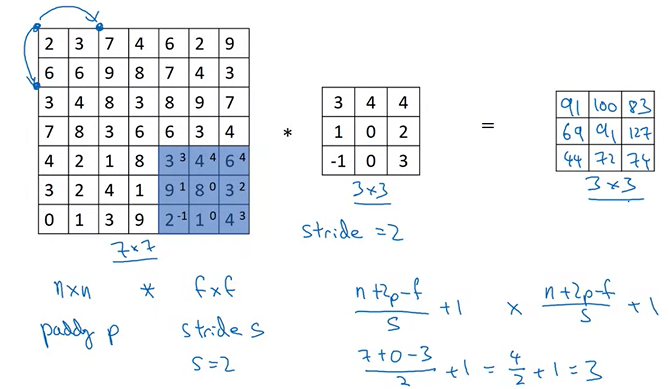 2 3 7 4 6 2 9
6 6 9 8 7 4 3
3 4 8 3 8 9 7
7 8 3 6 6 3 4
4 2 1 8 3 3 4 4 6 4
3 2 4 1 9 1 8 0 3 2
0 1 3 9 2 -1 1 0 4 3
7×7
*
3 4 4
1 0 2
-1 0 3
3×3
stride = 2
=
91 100 83
69 91 127
44 72 74
3×3
n×n * f×f
padding p stride s
s=2
n+2p-f / s + 1 × n+2p-f / s + 1
7+0-3 / 2 + 1 = 4/2 + 1 = 3